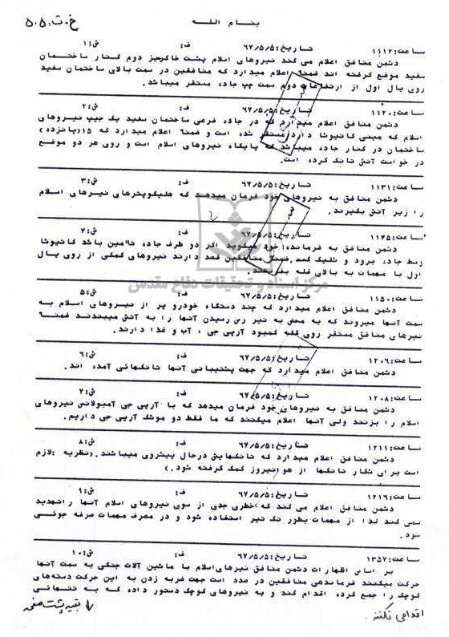 بنام الله
خ.ت.۵۰۵
ساعت:۱۱۱۲ تاریخ:۶۷/۵/۵ ف: ق:۱
دشمن منافق اعلام می کند نیروهای اسلام پشت خاکریز دوم کنار ساختمان
سفید موضع گرفته اند ضمنا" اعلام میدارد که منافقین در سمت بالای ساختمان سفید
روی یال اول از ارتفاعات دوم سمت چپ جاده مستقر میباشد.
ساعت:۱۱۲۰ تاریخ:۶۷/۵/۵ ف: ق:۲
دشمن منافق اعلام میدارد که در جاده فرعی ساختمان سفید یک جیپ نیروهای
اسلام که مینی کاتیوشا دارد مستقر شده است و ضمنا" اعلام میدارد که ۱۵(پانزده)
ساختمان در کنار جاده میباشد که پایگاه نیروهای اسلام است و روی هر دو موضع
در خواست آتش تانک کرده است.
ساعت:۱۱۳۱ تاریخ:۶۷/۵/۵ ف: ق:۳
دشمن منافق به نیروهای خود فرمان میدهد که هلیکوپترهای نیرهای اسلام
را زیر آتش بگیرند.
ساعت:۱۱۴۵ تاریخ:۶۷/۵/۵ ف: ق:۴
دشمن منافق به فرمانده خود میگوید اگر دو طرف جاده تامین باشد کاتیوشا
وسط جاده برود و شلیک کند ضمنا" منافقین قصد دارند نیروهای کمکی از روی یال
اول با مهمات به بالای قله بفرستند.
مرکز اسناد و تحقیقات دفاع مقدس
ساعت:۱۱۵۰ تاریخ:۶۷/۵/۵ ف: ق:۵
دشمن منافق اعلام میدارد که چند دستگاه خودرو پر از نیروهای اسلام به
سمت آنها میروند که به محض به تیر رس رسیدن آنها را به آتش میبندند ضمنا"
نیرهای منافق مستقر روی قله کمبود آرپی جی ، آب و غذا دارند.
ساعت:۱۲۰۶ تاریخ:۶۷/۵/۵ ف: ق:۶
دشمن منافق اعلام میدارد که جهت پشتیبانی آنها تانکهائی آمده اند.
ساعت:۱۲۰۸ تاریخ:۶۷/۵/۵ ف: ق:۷
دشمن منافق به نیروهای خود فرمان میدهد که با آرپی جی آمبولانس نیروهای
اسلام را بزنند ولی آنها اعلام میکنند که ما فقط دو موشک آرپی جی داریم.
ساعت:۱۲۱۱ تاریخ:۶۷/۵/۵ ف: ق:۸
دشمن منافق اعلام میدارد که تانکهایش درحال پیشروی میباشند.(نظریه لازم
است برای شکار تانکها از هوانیروز کمک گرفته شود.)
ساعت:۱۲۱۶ تاریخ:۶۷/۵/۵ ف: ق:۹
دشمن منافق اعلام می کند که خطری جدی از سوی نیروهای اسلام آنها را تهدید
نمی کند لذا از مهمات بطور تک تیر استفاده شود و در مصرف مهمات صرفه جوئی
شود.
ساعت:۱۳۵۷ تاریخ:۶۷/۵/۵ ف: ق:۱۰
بر اساس اظهارات دشمن منافق نیرهای اسلام با ماشین آلات جنگی به سمت آنها
حرکت میکنند فرماندهی منافقین در صدد است جهت ضربه زدن به این حرکت دسته‌های
کوچک را جمع کرده اقدام کند و به نیروهای کوچک دستور داده که به تنهائی
اقدامی نکنند.
بقیه پشت صفحه